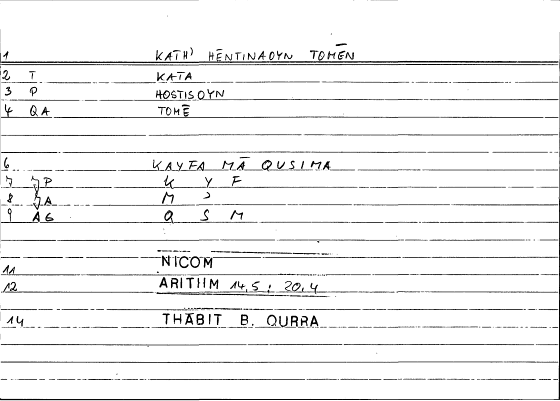 1 KATH' HĒNTINAOYN TOMĒN
2 T KATA
3 P HOSTISOYN
4 QA TOMĒ
6 KAYFA MĀ QUSIMA
7 JP K Y F
8 JA M ʾ
9 AG Q S M
11 NICOM
12 ARITHM 14,5 ; 20,4
14 THĀBIT B. QURRA